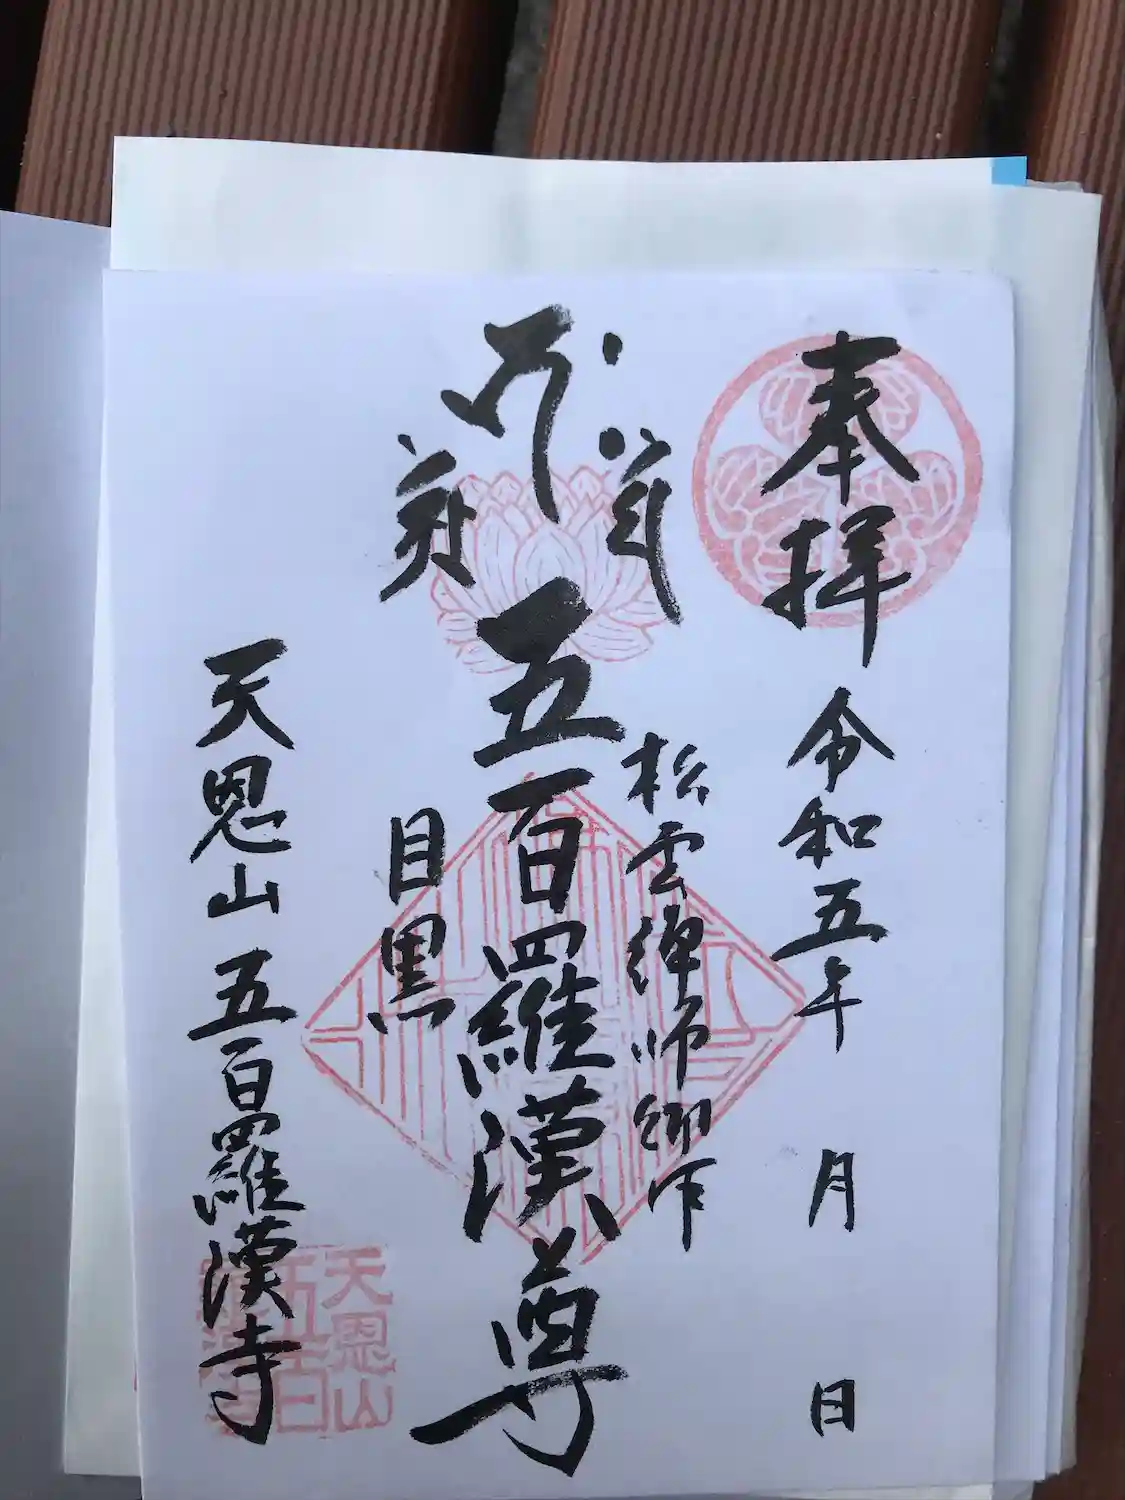 奉拝
令和五年 月 日
松雲禅師御作
五百羅漢尊
目黒
天恩山 五百羅漢寺
天恩山
五百
羅漢寺